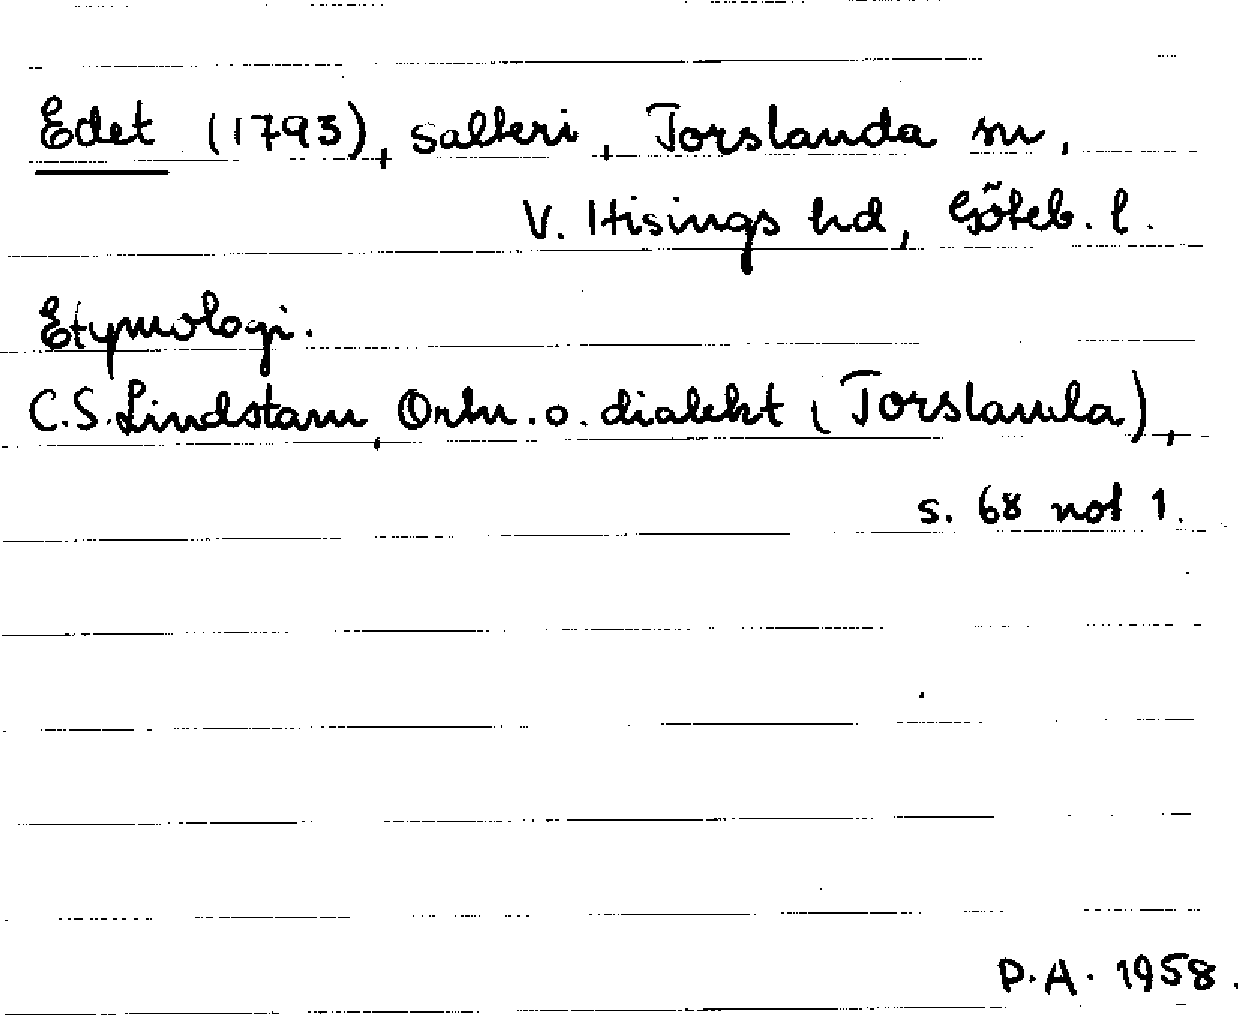 Edet (1793), salteri, Torslanda sn,
V. Hisings hd, Göteb. l.
Etymologi.
C.S. Lindstam, Ortn. o. dialekt (Torslanda),
s. 68 not 1.
P.A. 1958.